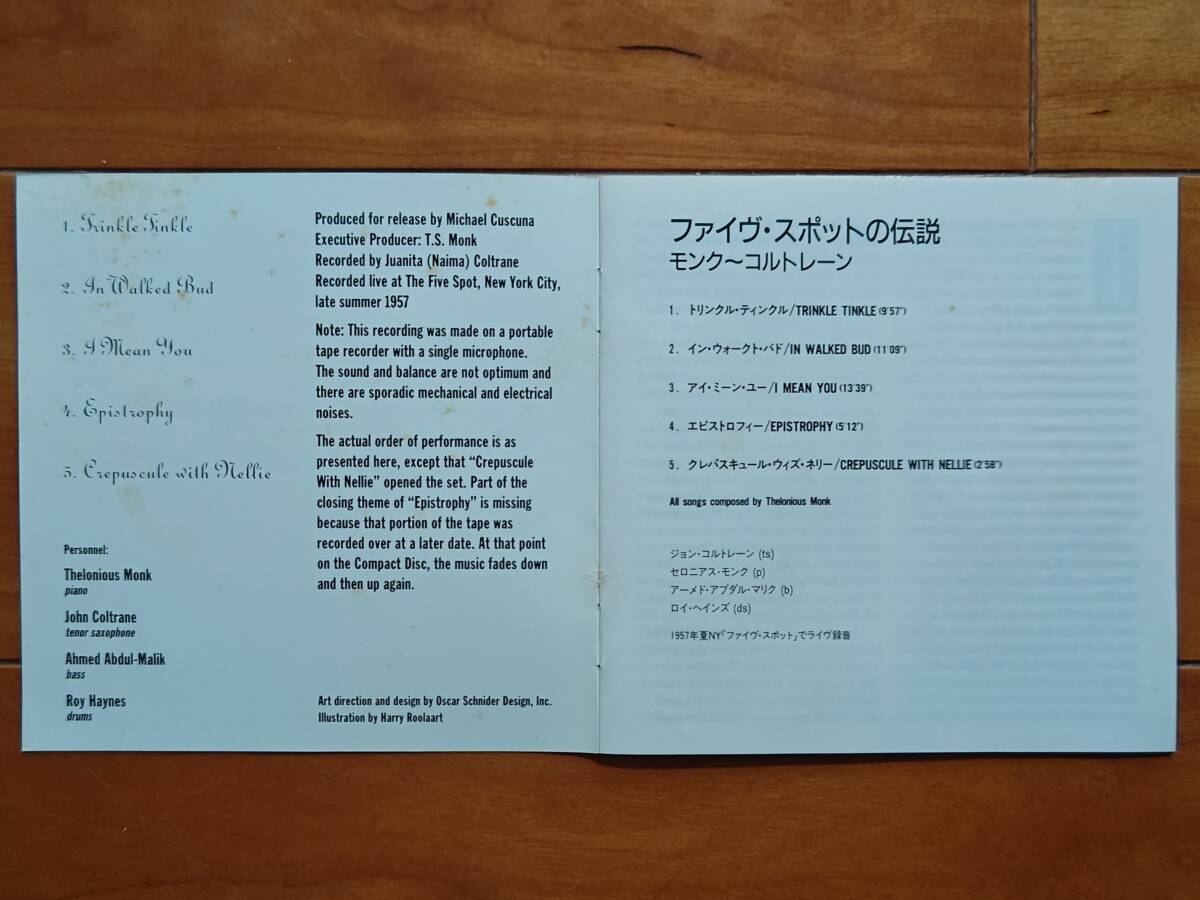 1. Trinkle Tinkle
2. In Walked Bud
3. I Mean You
4. Epistrophy
5. Crepuscule with Nellie
Personnel:
Thelonious Monk
piano
John Coltrane
tenor saxophone
Ahmed Abdul-Malik
bass
Roy Haynes
drums
Produced for release by Michael Cuscuna
Executive Producer: T.S. Monk
Recorded by Juanita (Naima) Coltrane
Recorded live at The Five Spot, New York City,
late summer 1957
Note: This recording was made on a portable
tape recorder with a single microphone.
The sound and balance are not optimum and
there are sporadic mechanical and electrical
noises.
The actual order of performance is as
presented here, except that “Crepuscule
With Nellie” opened the set. Part of the
closing theme of “Epistrophy” is missing
because that portion of the tape was
recorded over at a later date. At that point
on the Compact Disc, the music fades down
and then up again.
Art direction and design by Oscar Schnider Design, Inc.
Illustration by Harry Roolaart
ファイヴ・スポットの伝説
モンク〜コルトレーン
1. トリンクル・ティンクル/TRINKLE TINKLE (9'57")
2. イン・ウォークト・バド/IN WALKED BUD (11'09")
3. アイ・ミーン・ユー/I MEAN YOU (13'39")
4. エピストロフィー/EPISTROPHY (5'12")
5. クレパスキュール・ウィズ・ネリー/CREPUSCULE WITH NELLIE (2'58")
All songs composed by Thelonious Monk
ジョン・コルトレーン (ts)
セロニアス・モンク (p)
アーメド・アブダル・マリク (b)
ロイ・ヘインズ (ds)
1957年夏NY「ファイヴ・スポット」でライヴ録音